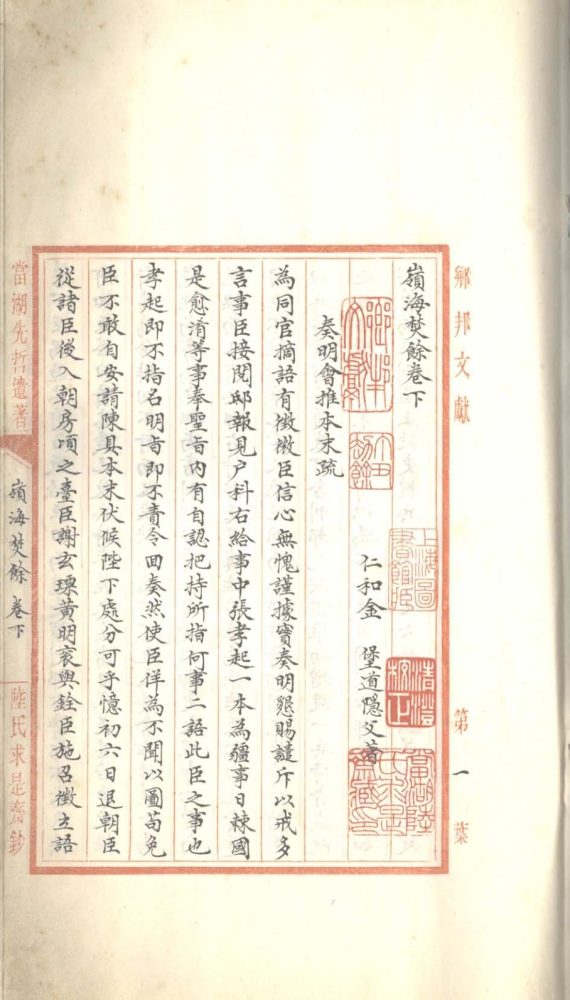 鄉邦文獻
第一葉
嶺海焚餘卷下
仁和金 堡道隱父著
鄉邦文獻
上海圖書館藏
清澄校正
奏明會推本末疏
為同官摘語有徵微臣信心無愧謹據實奏明懇賜譴斥以戒多
言事臣接閱邸報見户科右給事中張孝起一本為疆事日棘國
是愈淆等事奉聖旨內有自認把持所指何事二語此臣之事也
孝起即不指名明旨即不責令回奏然使臣佯為不聞以圖苟免
臣不敢自安請陳具本末伏候陛下處分可乎憶初六日退朝臣
從諸臣後入朝房頃之臺臣謝玄黃明袞與銓臣施召徵立語
當湖先哲遺著
嶺海焚餘 卷下
陸氏求是齋鈔